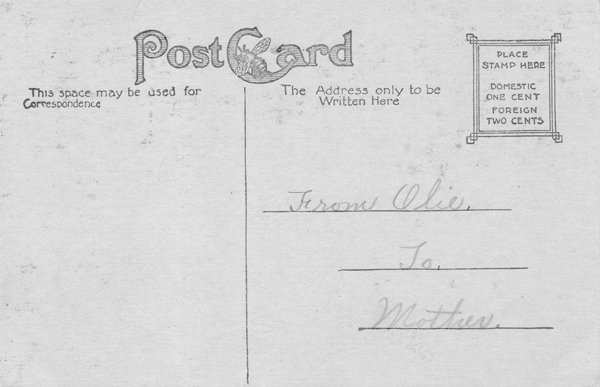 Post Card
This space may be used for
Correspondence
The Address only to be
Written Here
PLACE
STAMP HERE
DOMESTIC
ONE CENT
FOREIGN
TWO CENTS
From Olie.
To.
Mother.